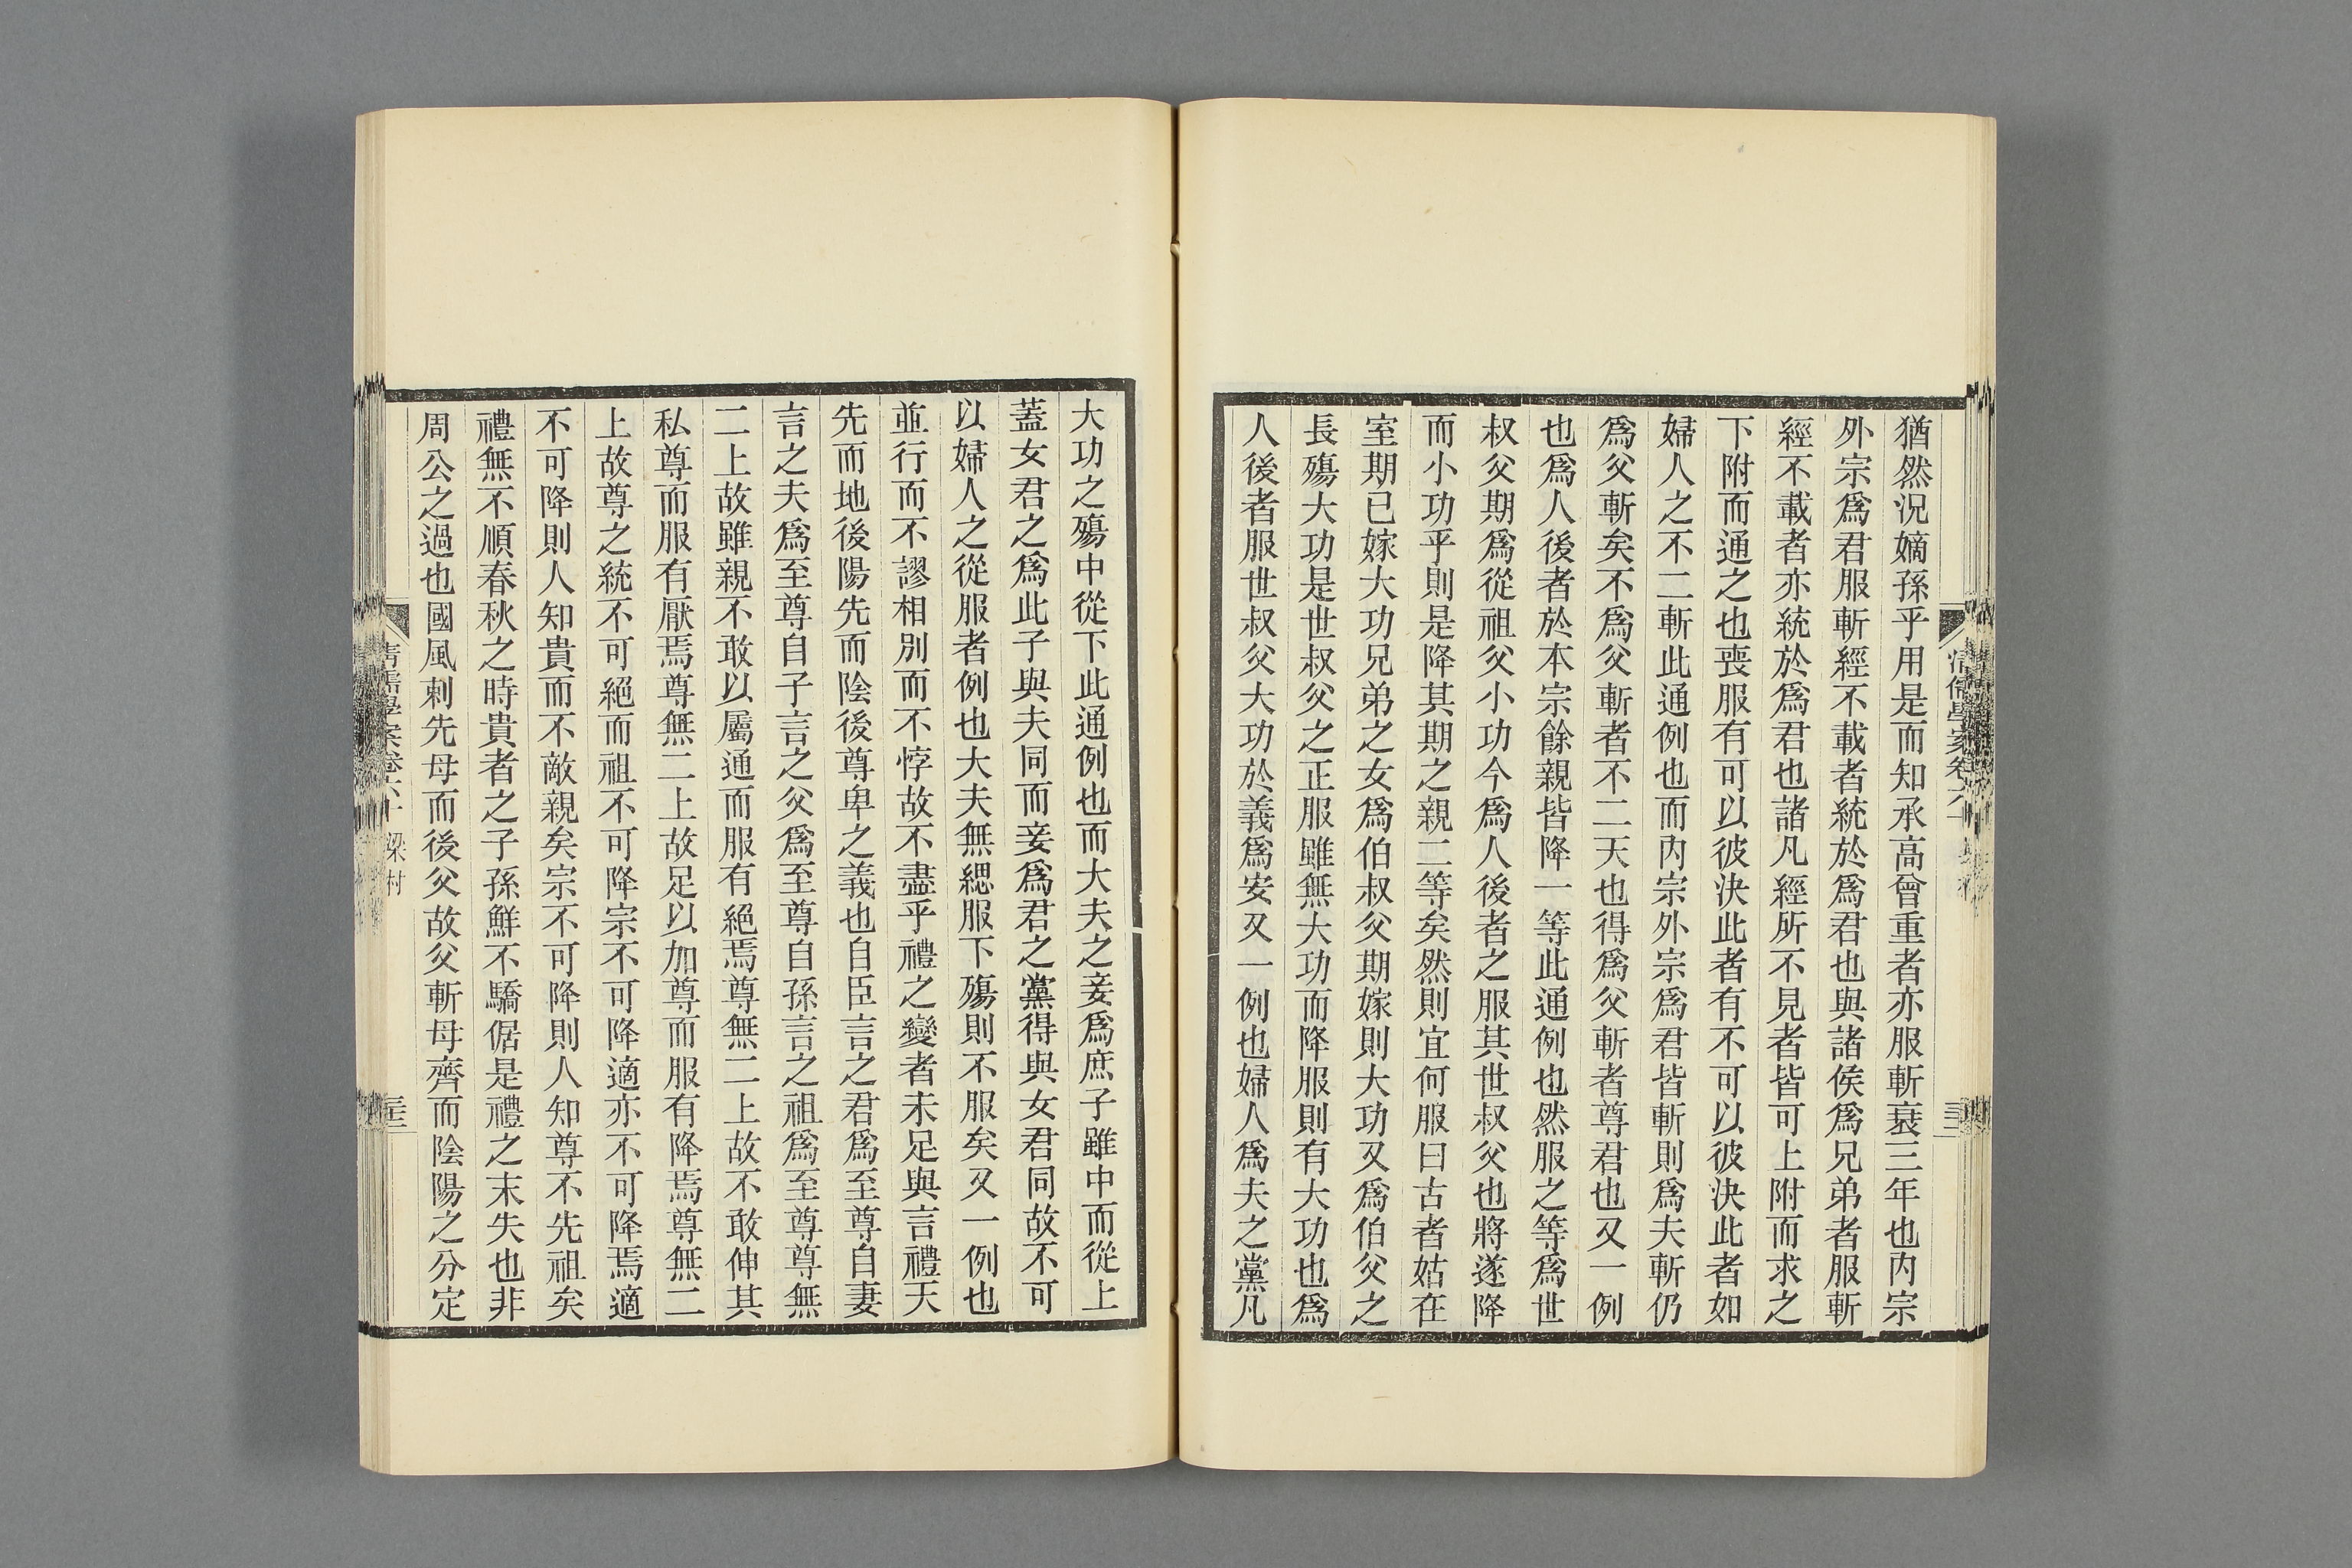 猶然況嫡孫乎用是而知承高曾重者亦服斬衰三年也內宗
外宗爲君服斬經不載者統於爲君也與諸侯爲兄弟者服斬
經不載者亦統於爲君也諸凡經所不見者皆可上附而求之
下附而通之也喪服有可以彼決此者有不可以彼決此者如
婦人之不二斬此通例也而內宗外宗爲君皆斬則爲夫斬仍
爲父斬矣不爲父斬者不二天也得爲父斬者尊君也又一例
也爲人後者於本宗餘親皆降一等此通例也然服之等爲世
叔父期爲從祖父小功今爲人後者之服其世叔父也將遂降
而小功乎則是降其期之親二等矣然則宜何服曰古者姑在
室期已嫁大功兄弟之女爲伯叔父期嫁則大功又爲伯父之
長殤大功是世叔父之正服雖無大功而降服則有大功也爲
人後者服世叔父大功於義爲安又一例也婦人爲夫之黨凡
大功之殤中從下此通例也而大夫之妾爲庶子雖中而從上
蓋女君之爲此子與夫同而妾爲君之黨得與女君同故不可
以婦人之從服者例也大夫無緦服下殤則不服矣又一例也
並行而不謬相別而不悖故不盡乎禮之變者未足與言禮天
先而地後陽先而陰後尊卑之義也自臣言之君爲至尊自妻
言之夫爲至尊自子言之父爲至尊自孫言之祖爲至尊尊無
二上故雖親不敢以屬通而服有絕焉尊無二上故不敢伸其
私尊而服有厭焉尊無二上故足以加尊而服有降焉尊無二
上故尊之統不可絕而祖不可降宗不可降適亦不可降焉適
不可降則人知貴而不敵親矣宗不可降則人知尊不先祖矣
禮無不順春秋之時貴者之子孫鮮不驕倨是禮之末失也非
周公之過也國風刺先母而後父故父斬母齊而陰陽之分定
清儒學案卷六十 梁村
三三